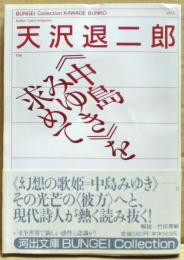 BUNGEI Collection KAWADE BUNKO
天沢退二郎
《中島みゆき》を求めて
《幻想の歌姫=中島みゆき》
その光芒の〈彼方〉へと、
現代詩人が熱く読み抜く!
河出文庫 BUNGEI Collection